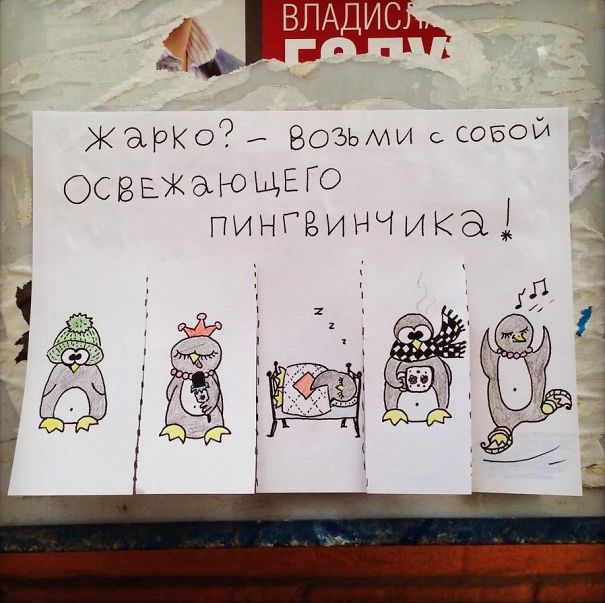 ВЛАДИСЛА
ГОЛУ
жарко? – возьми с собой
освежающего
пингвинчика!
z
z
z